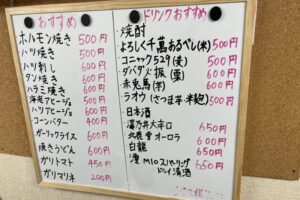 おすすめ
ホルモン焼き 500円
ハツ焼き 500円
ハツ刺し 600円
タン焼き 600円
ハラミ焼き 600円
海老アヒージョ 600円
ハツアヒージョ 600円
コーンバター 400円
ガーリックライス 600円
焼きうどん 600円
ガリトマト 450円
ガリマリネ 200円
ドリンクおすすめ
焼酎
よろしく千萬あるべし(米) 500円
コニャック529(麦) 500円
ダバダ火振(栗) 600円
赤兎馬(芋) 600円
ラオウ(さつま芋・米麹) 500円
日本酒
大辛口 650円
北秋田 オーロラ 600円
白龍 600円
澪 MIO スパークリング 650円
ドライ 清酒